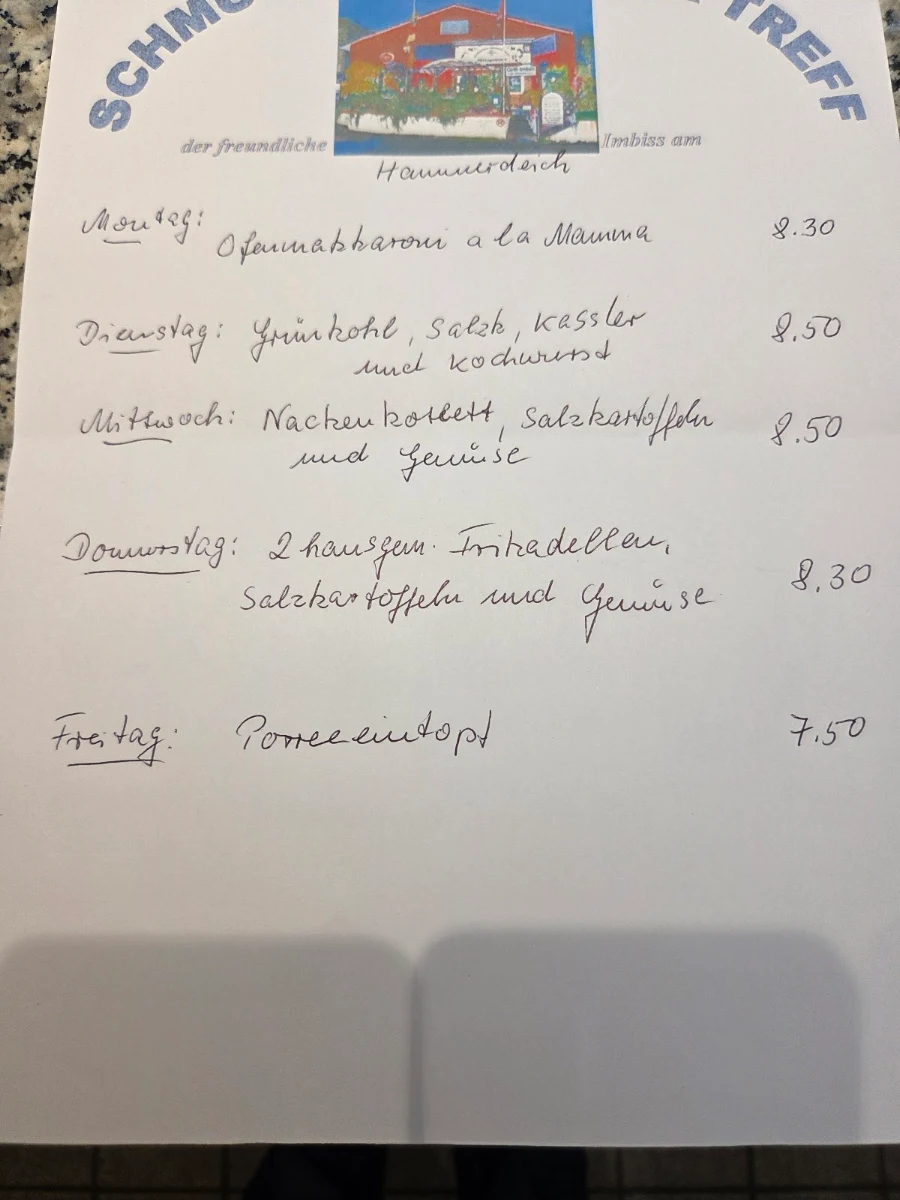 SCHMU
TREFF
der freundliche Imbiss am
Hammerdeich
Montag:
Ofenmakkaroni a la Mamma 8.30
Dienstag: Grünkohl, Salzk, Kassler
und Kochwurst 8.50
Mittwoch: Nackenkotlett, Salzkartoffeln
und Gemüse 8.50
Donnerstag: 2 hausgem. Frikadellen,
Salzkartoffeln und Gemüse 8.30
Freitag: Porreeeintopf 7.50